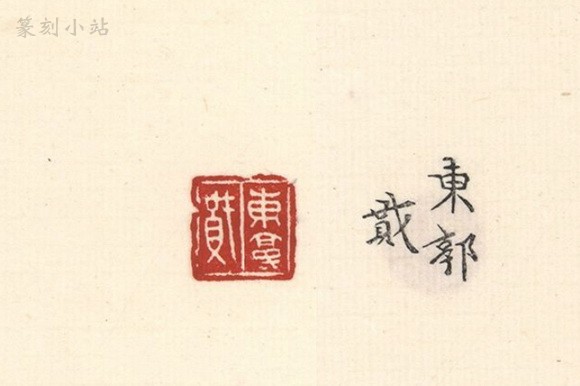 篆刻小站
東郭
東郭